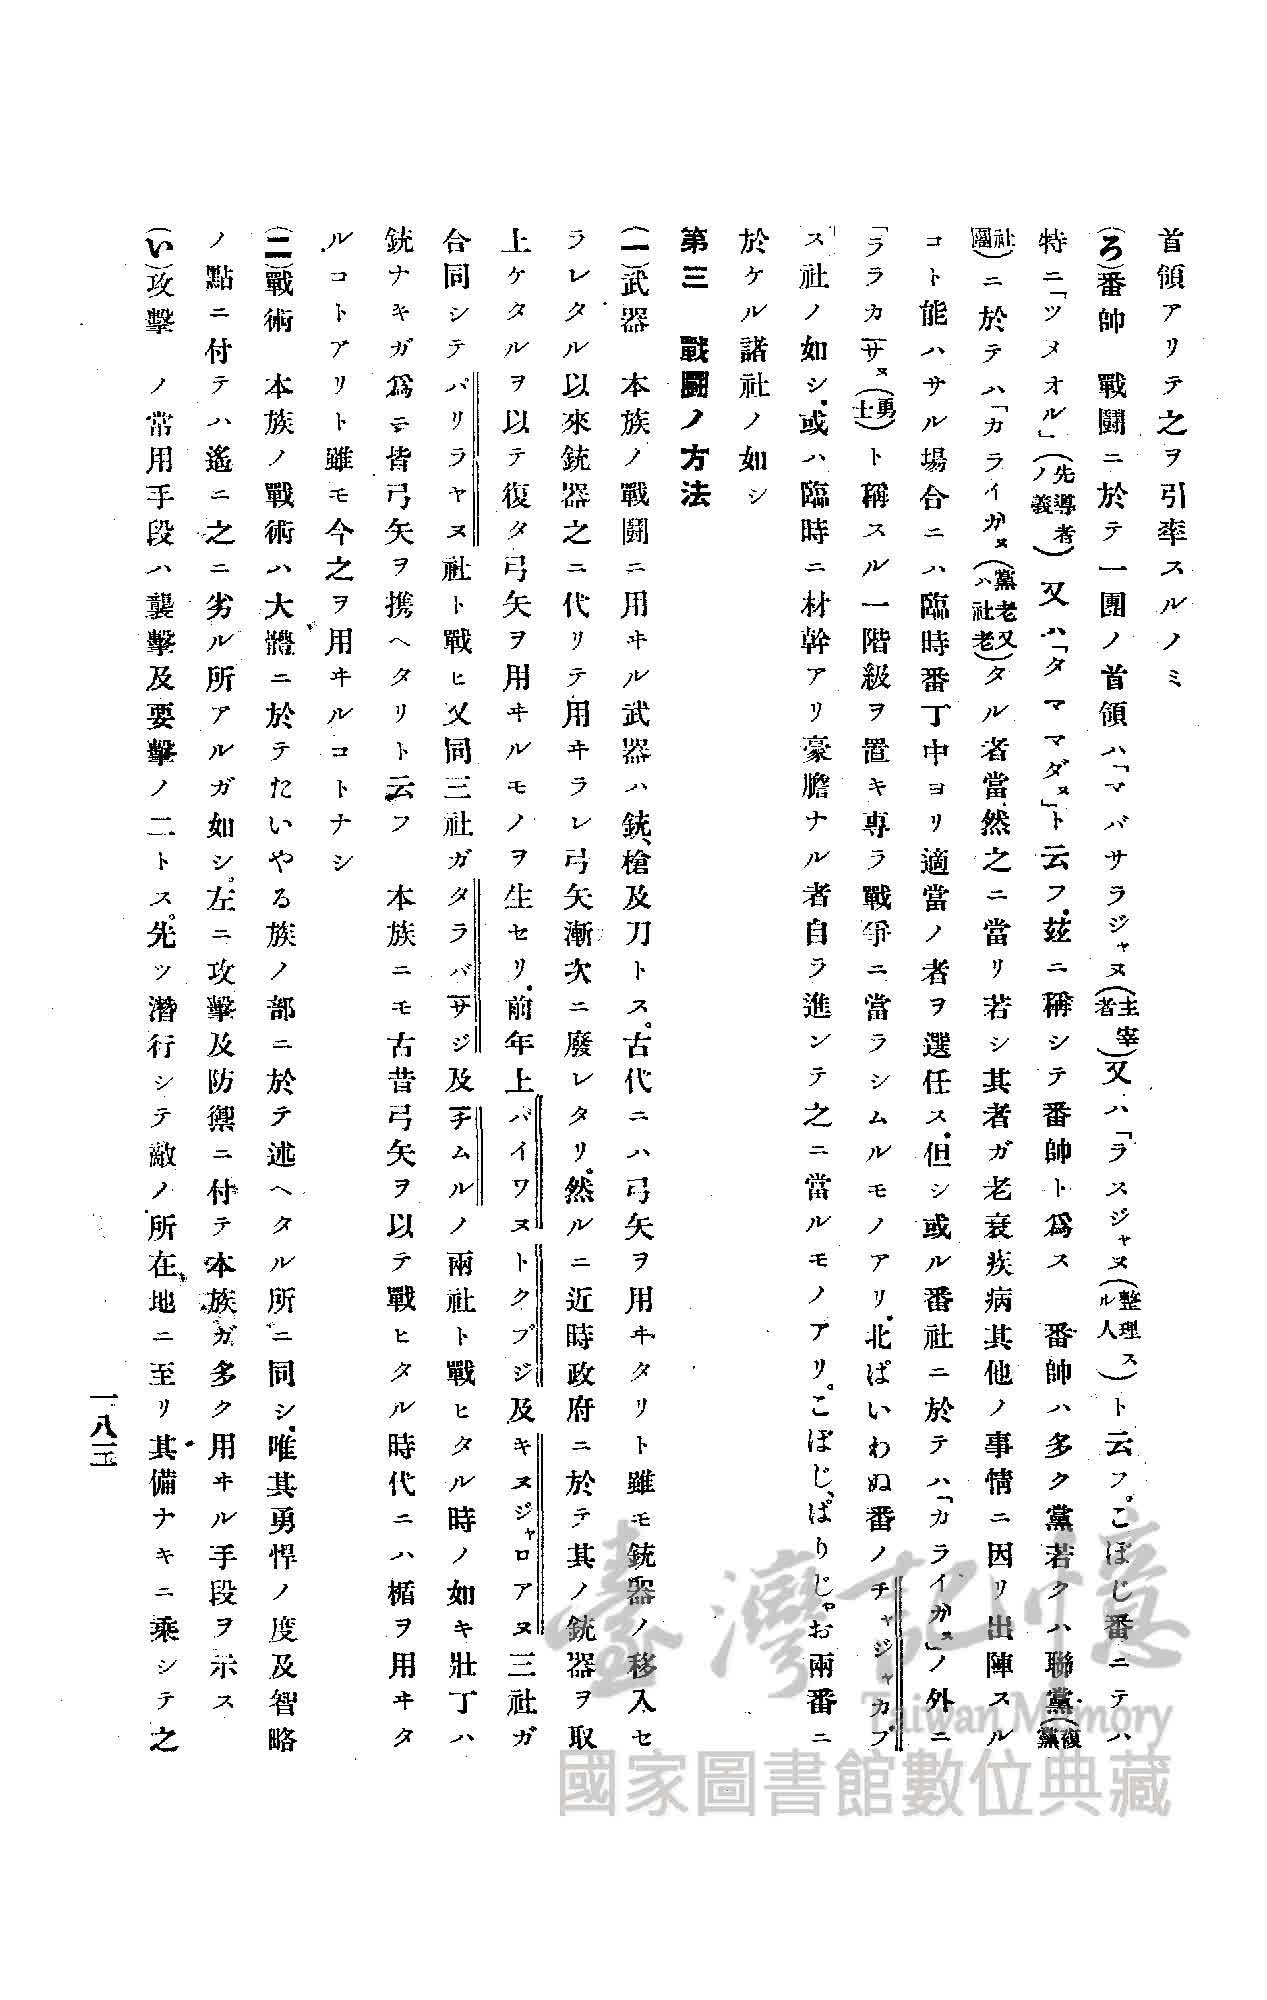 首領アリテ之ヲ引率スルノミ
(ろ)番帥 戰鬪ニ於テ一團ノ首領ハ「マバサラジャヌ(主宰者)又ハ「ラスジャヌ(整理スル人)ト云フ。こぼじ番ニテハ
特ニ「ツメオル」(先導者ノ義)又ハ「タママダヌ」ト云フ、玆ニ稱シテ番帥ト爲ス 番帥ハ多ク黨若クハ聯黨(複黨
社團)ニ於テハ「カライガヌ(黨老又ハ社老)タル者當然之ニ當リ若シ其者ガ老衰疾病其他ノ事情ニ因リ出陣スル
コト能ハサル場合ニハ臨時番丁中ヨリ適當ノ者ヲ選任ス、但シ或ル番社ニ於テハ「カライガヌ」ノ外ニ
「ララカサヌ(勇士)ト稱スル一階級ヲ置キ專ラ戰爭ニ當ラシムルモノアリ、北ぱいわぬ番ノチャジャカブ
ス社ノ如シ、或ハ臨時ニ材幹アリ豪膽ナル者自ラ進ンテ之ニ當ルモノアリ。こぼじ、ぱりじゃお兩番ニ
於ケル諸社ノ如シ
第三 戰鬪ノ方法
(一)武器 本族ノ戰鬪ニ用ヰル武器ハ銃、槍及刀トス。古代ニハ弓矢ヲ用ヰタリト雖モ銃器ノ移入セ
ラレタル以來銃器之ニ代リテ用ヰラレ弓矢漸次ニ廢レタリ。然ルニ近時政府ニ於テ其ノ銃器ヲ取
上ケタルヲ以テ復タ弓矢ヲ用ヰルモノヲ生セリ、前年上パイワヌトクブジ及キヌジャロアヌ三社ガ
合同シテバリラヤヌ社ト戰ヒ又同三社ガタラバサジ及チムルノ兩社ト戰ヒタル時ノ如キ壯丁ハ
銃ナキガ爲ニ皆弓矢ヲ携ヘタリト云フ 本族ニモ古昔弓矢ヲ以テ戰ヒタル時代ニハ楯ヲ用ヰタ
ルコトアリト雖モ今之ヲ用ヰルコトナシ
(二)戰術 本族ノ戰術ハ大體ニ於テたいやる族ノ部ニ於テ述ヘタル所ニ同シ、唯其勇悍ノ度及智略
ノ點ニ付テハ遙ニ之ニ劣ル所アルガ如シ。左ニ攻擊及防禦ニ付テ本族ガ多ク用ヰル手段ヲ示ス
(い)攻擊 ノ常用手段ハ襲擊及要擊ノ二トス。先ツ潛行シテ敵ノ所在地ニ至リ其備ナキニ乘シテ之
一八五
臺灣記憶
Taiwan Memory
國家圖書館數位典藏